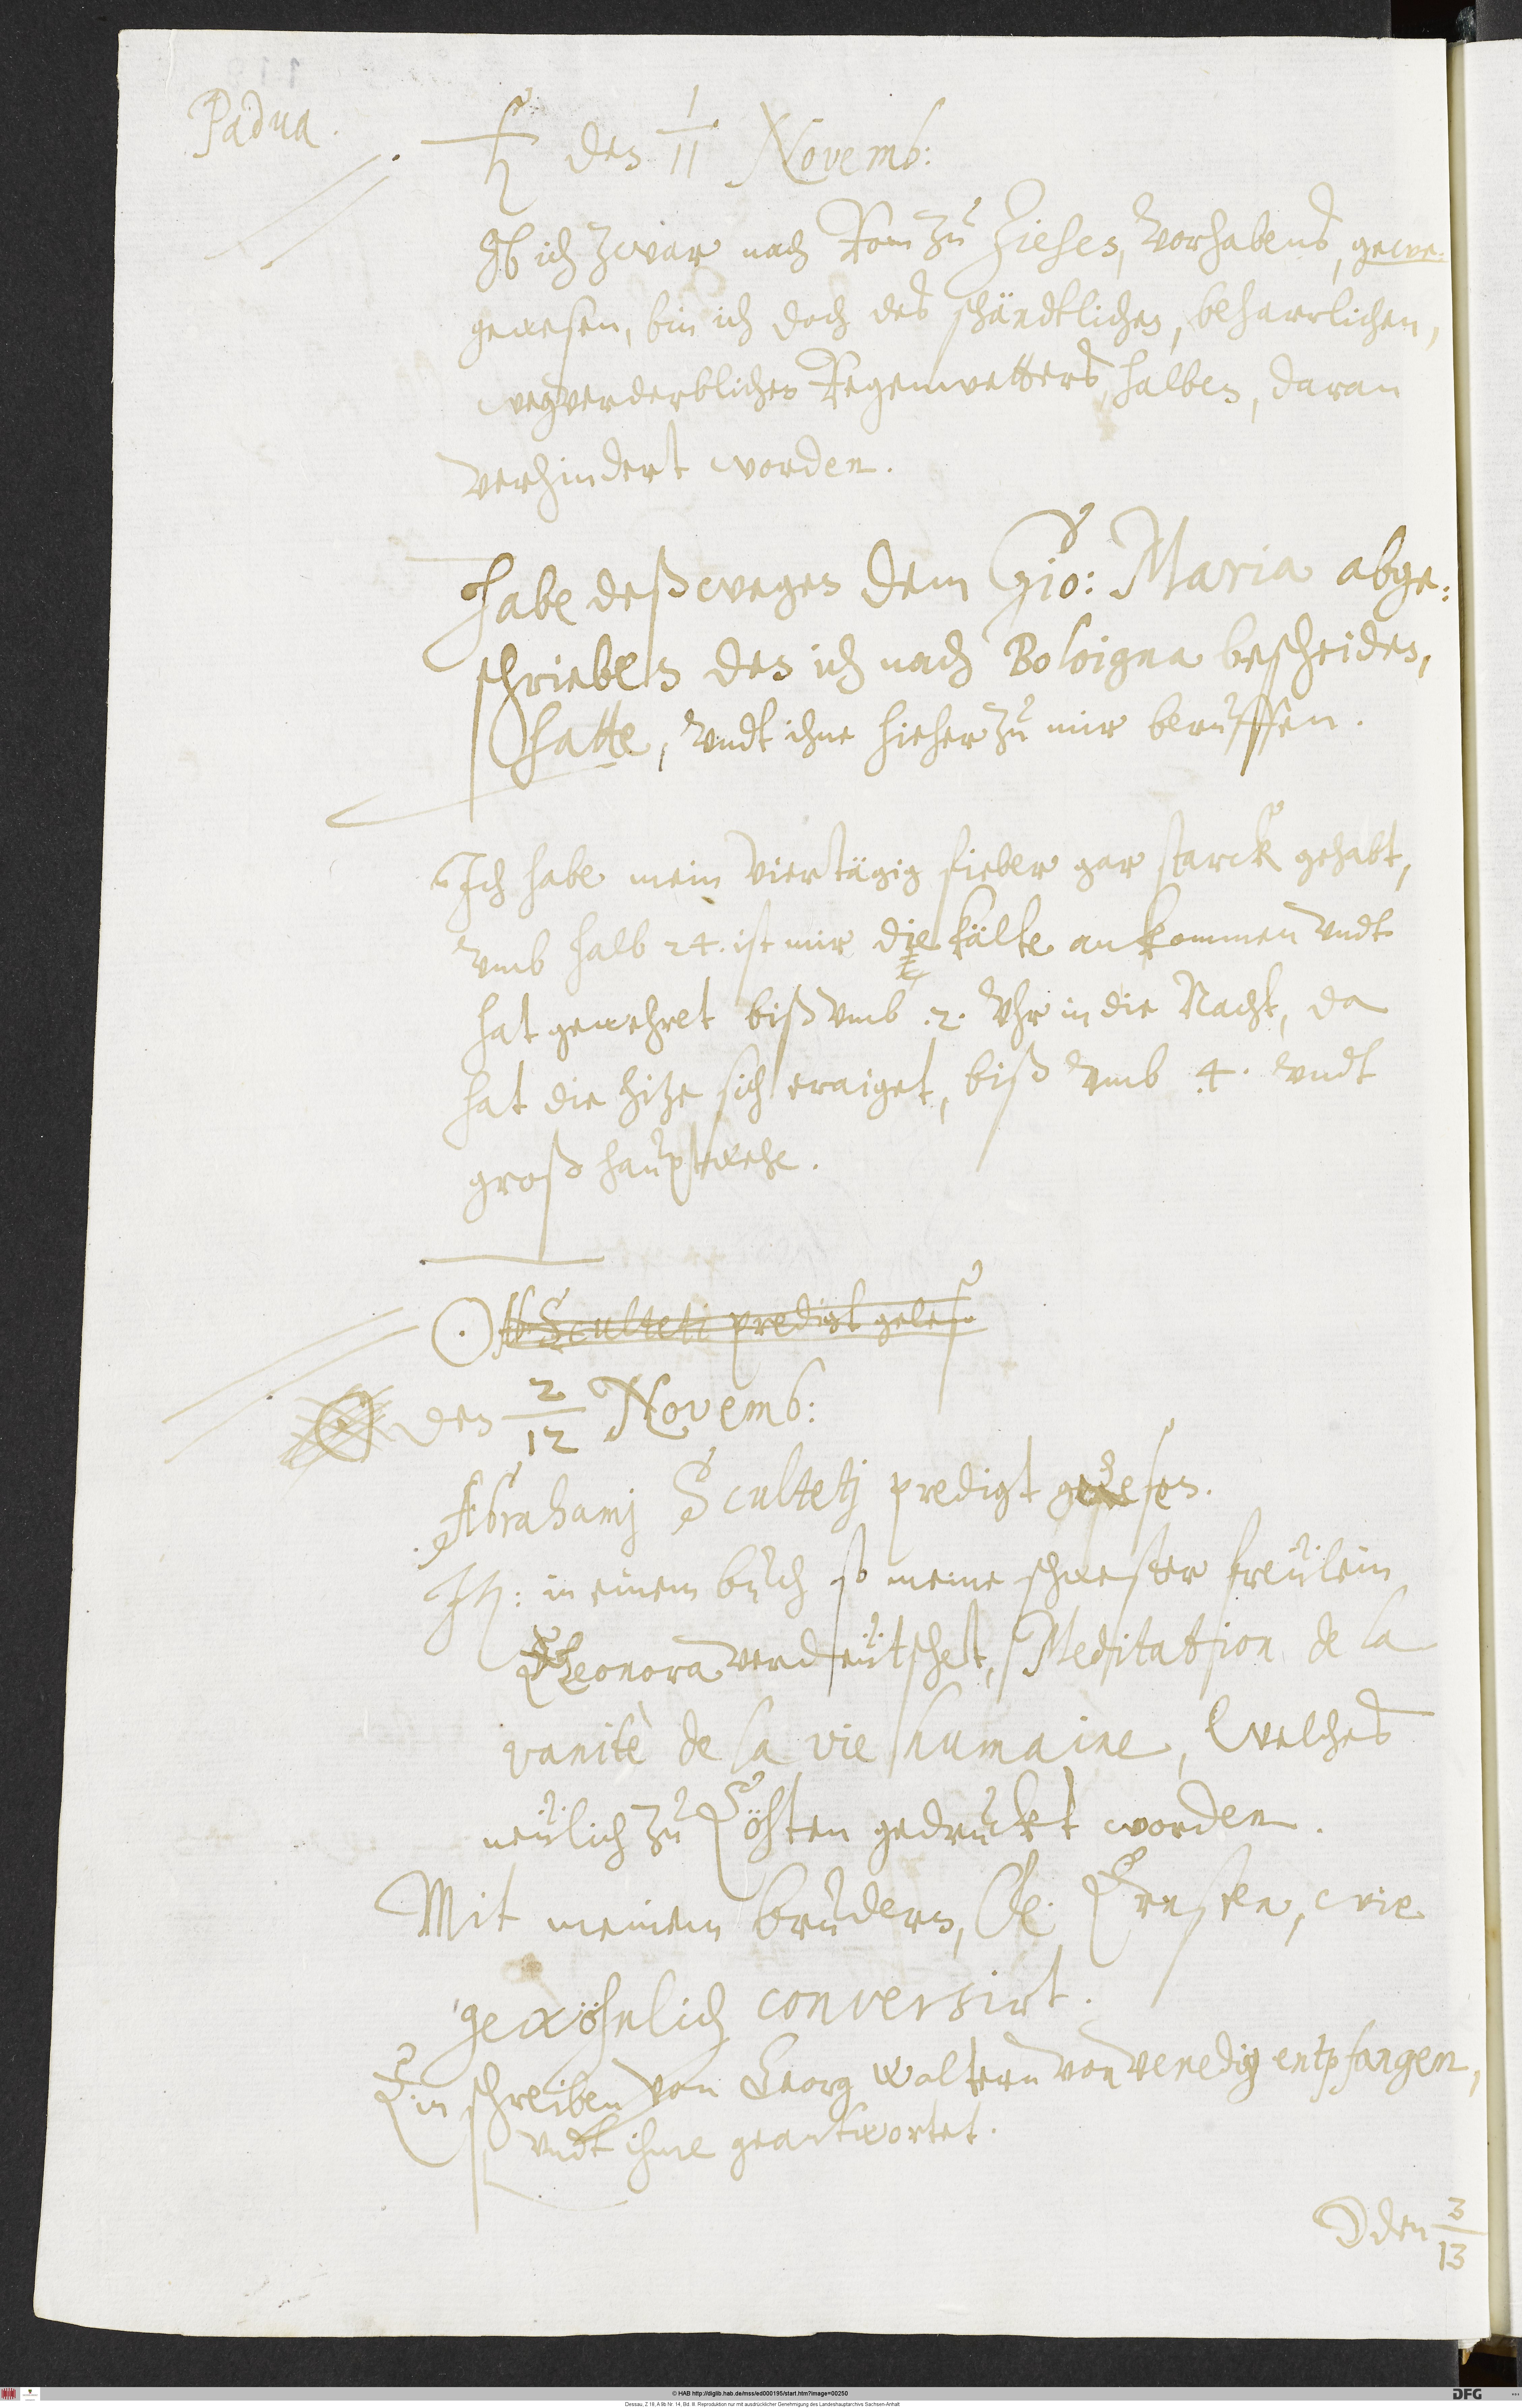 Padua.
♄ den 1/11 Novemb:
Ob ich zwar nach Rom zu ziehen, vorhabens, gewe-
gewesen, bin ich doch des schändtlichen, beharrlichen,
wegverderblichen Regenwetters halben, daran
verhindert worden.
Habe deßwegen dem Gio: Maria abge:
schrieben den ich nach Boloigna bescheiden,
hatte, undt ihne hieher zu mir beruffen.
Ich habe mein viertägig fieber gar starck gehabt,
umb halb 24. ist mir die kälte ankommen undt
hat gewehret biß umb .2. Uhr in die Nacht, da
hat die hitze sich eraiget, biß umb .4. undt
groß hauptwehe.
☉ Ab Sculteti predigt geles
☉ den 2/12 Novemb:
Abrahamj Scultetj predigt gelesen.
It: in einem buch so meine schwester freulein
Eleonora verdeutschet, Meditation de la
vanitè de la vie humaine, welches
neulich zu Cöhten gedruckt worden.
Mit meinem brudern, F: Ernsten, wie
gewöhnlich conversirt.
Ein schreiben von Georg Waltern von Venedig entpfangen,
undt ihme geantwortet.
☽ den 3/13